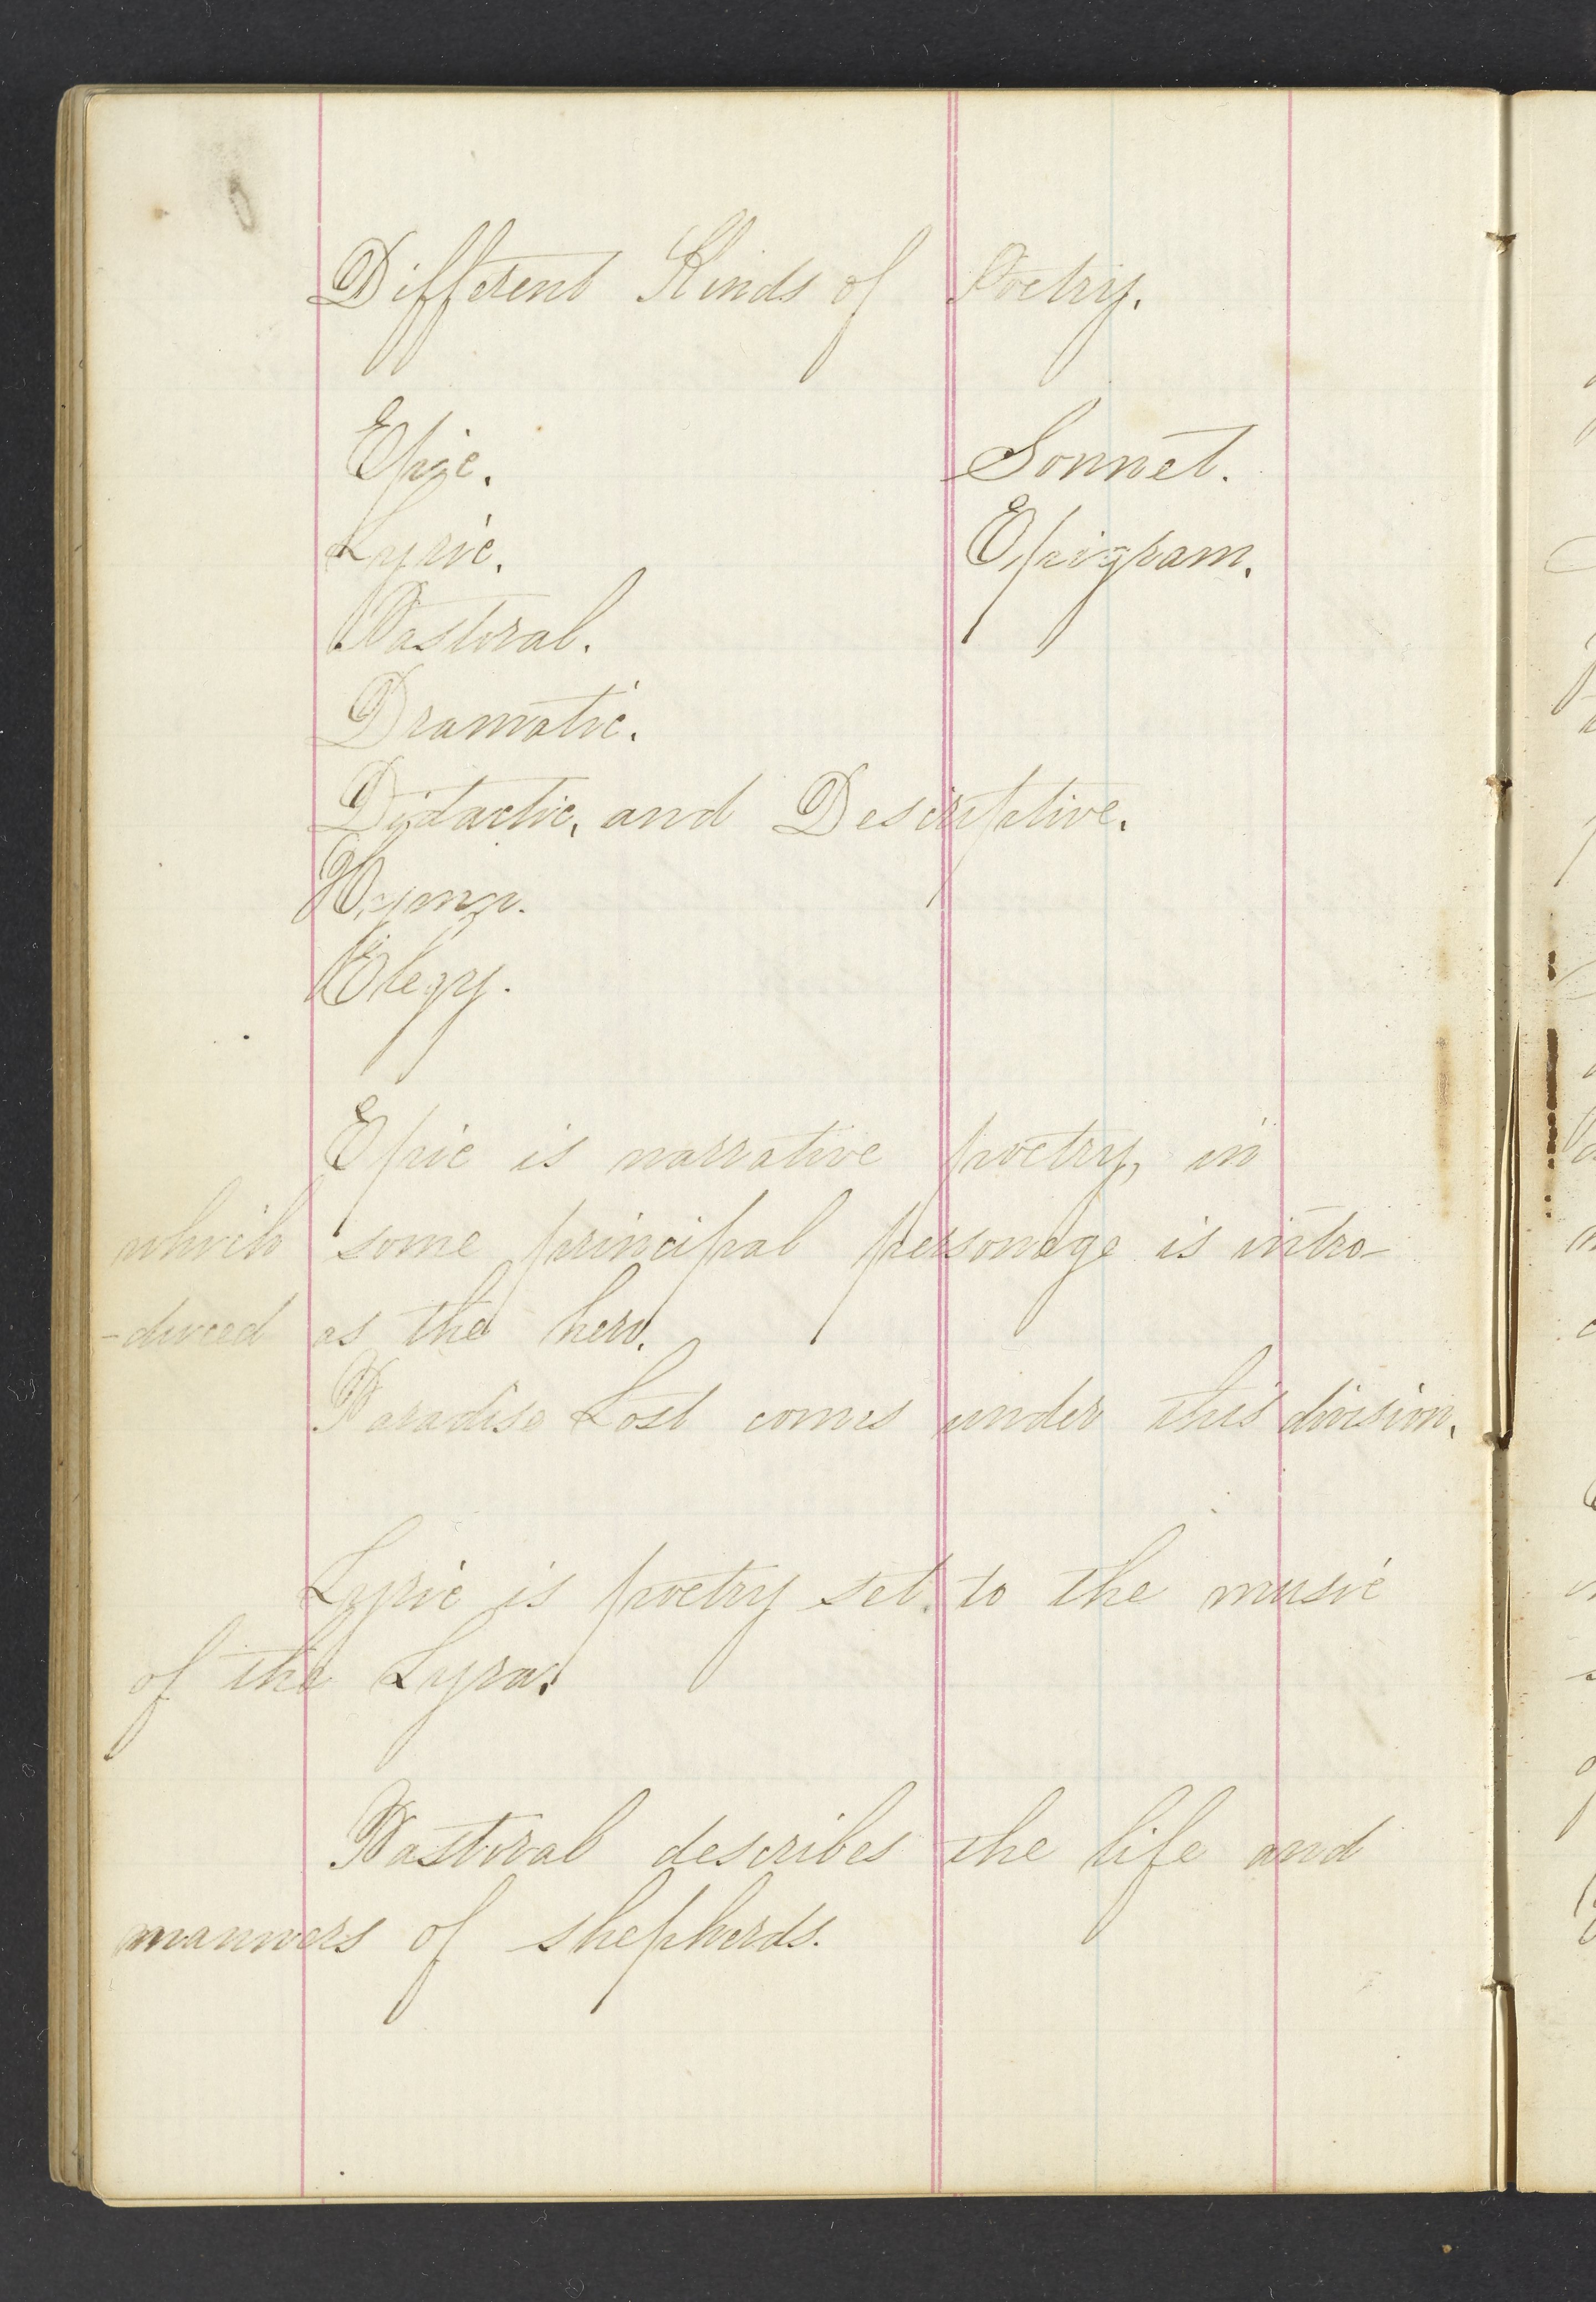 Different Kinds of Poetry.
Epic. Sonnet.
Lyric. Epigram.
Pastoral.
Dramatic.
Didactic, and Descriptive.
Hymn.
Elegy.
Epic is narrative poetry, in
which some principal personage is intro-
-duced as the hero.
Paradise Lost comes under this division.
Lyric is poetry set to the music
of the Lyra.
Pastoral describes the life and
manners of shepherds.